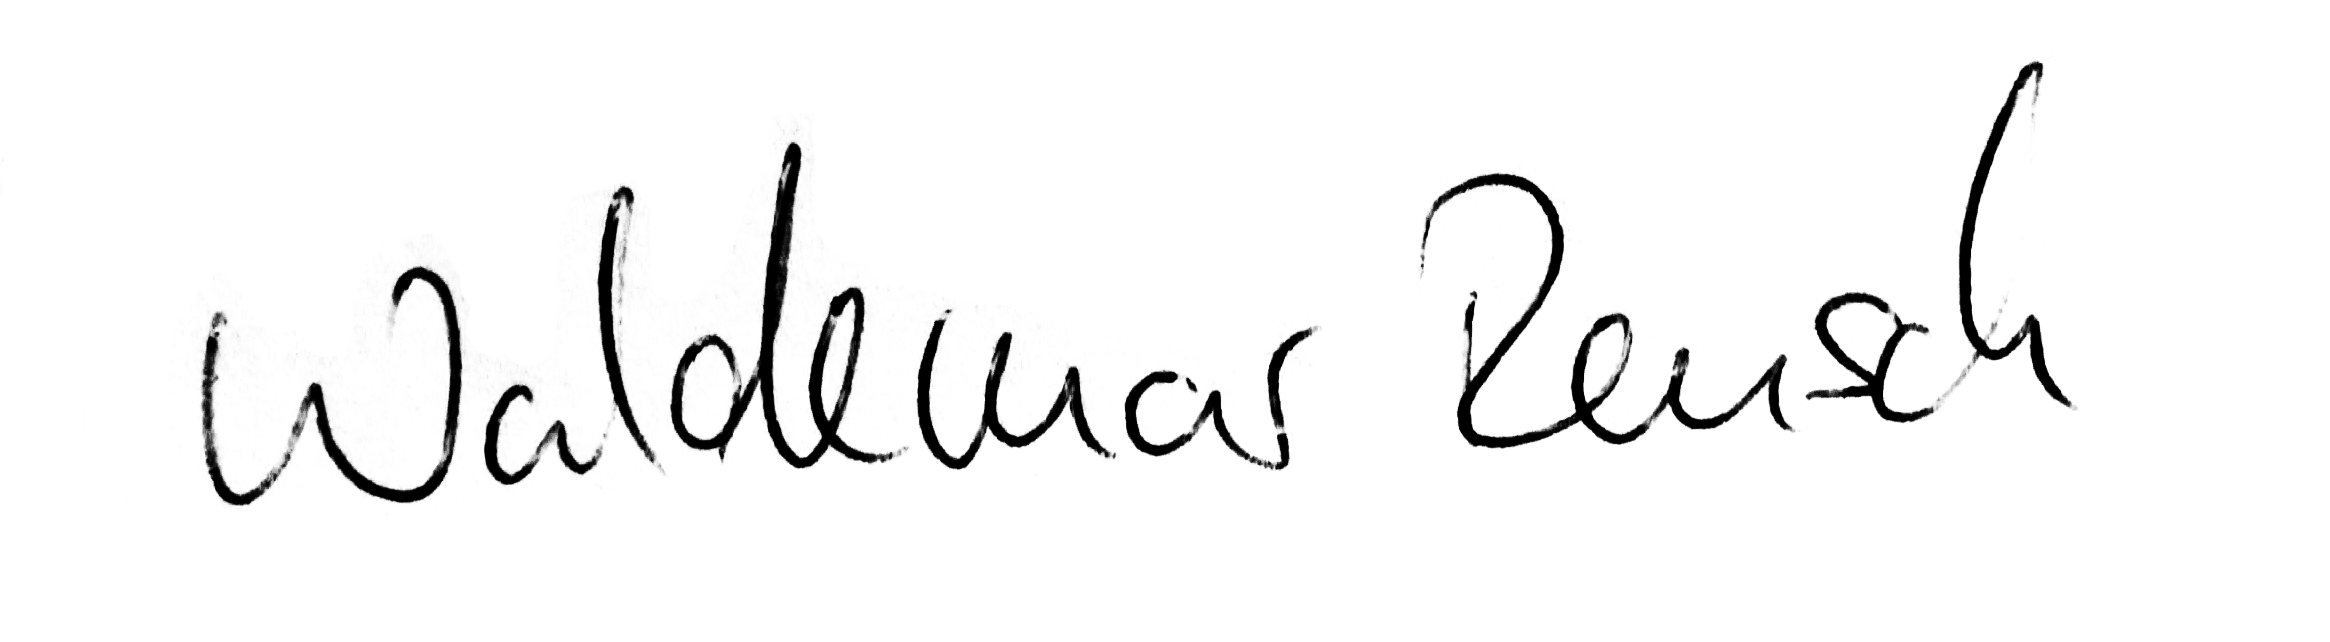 Waldemar Rensch